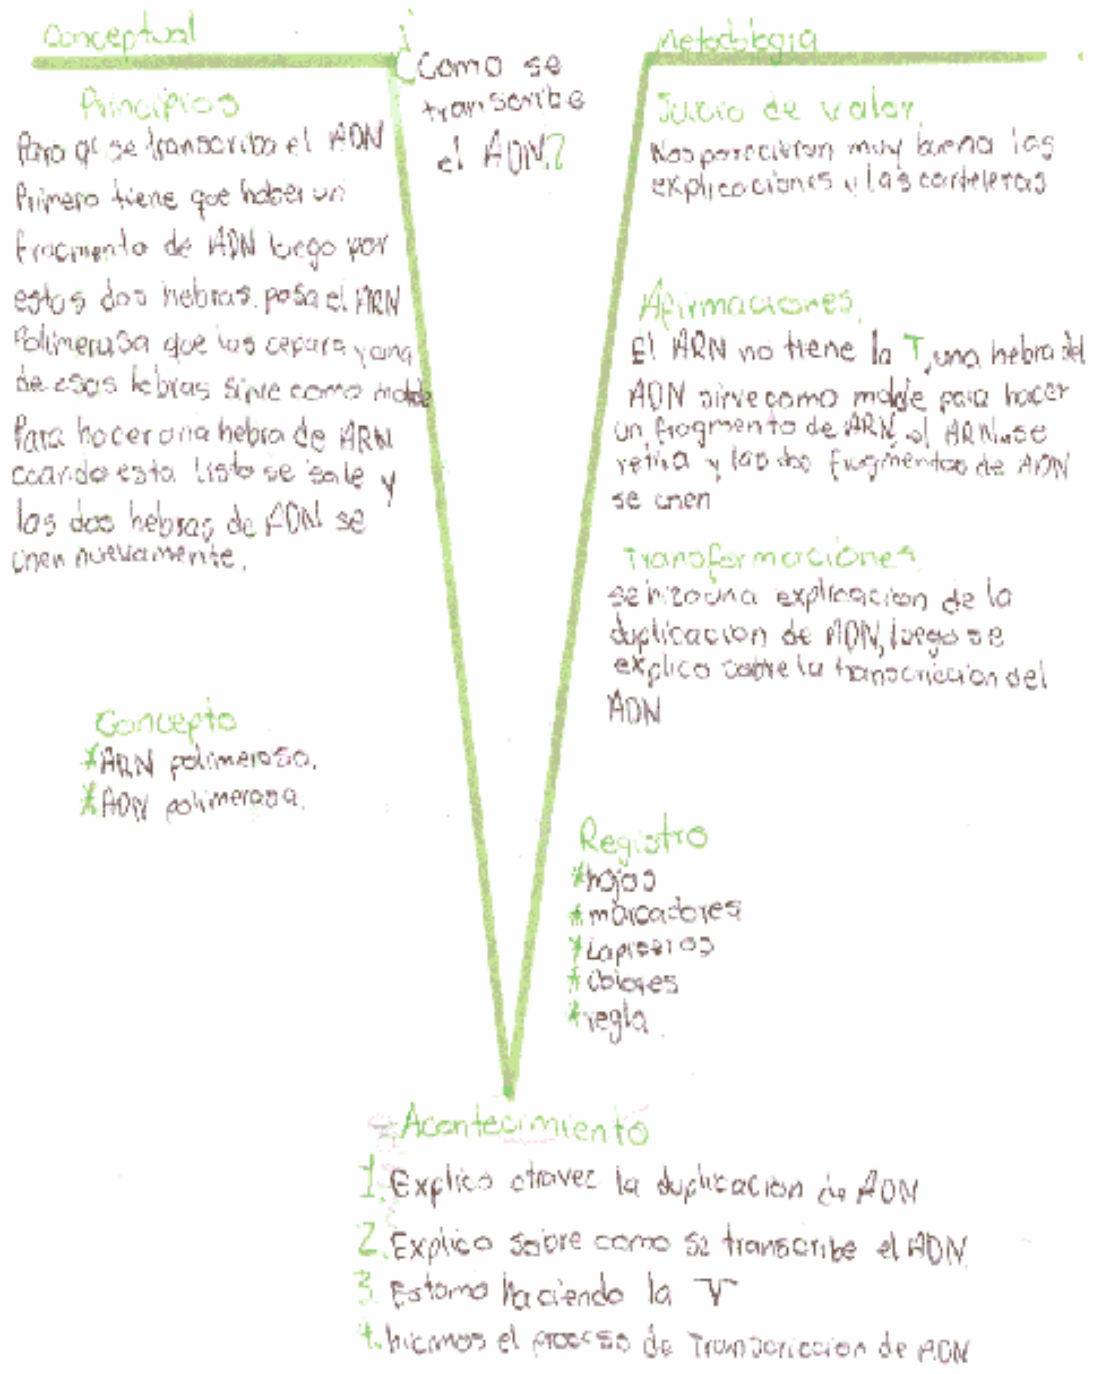 Conceptual
Principios
Para q' se transcriba el ADN
Primero tiene que haber un
fracmento de ADN luego por
estas dos hebras pasa el ARN
Polimerasa que las cepara y una
de esas hebras sirve como molde
Para hacer una hebra de ARN
cuando esta listo se sale y
las dos hebras de ADN se
unen nuevamente.
Concepto
*ARN polimerasa.
*ADN polimerasa.
¿Como se
transcribe
el ADN?
Metodologia
Juicio de valor.
Nos parecieron muy buena las
explicaciones y las carteleras
Afirmaciones.
El ARN no tiene la T, una hebra del
ADN sirve como molde para hacer
un fragmento de ARN, el ARN se
retira y las dos fragmentos de ADN
se unen
Transformaciones.
se hizo una explicacion de la
duplicacion de ADN, luego se
explico sobre la transcricion del
ADN
Registro
*hojas
*marcadores
*Lapiseros
*Colores
*regla.
Acontecimiento
1. Explico otravez la duplicacion de ADN
2. Explico sobre como se transcribe el ADN.
3. Estamo haciendo la V
4. hicimos el proceso de Transcriccion de ADN